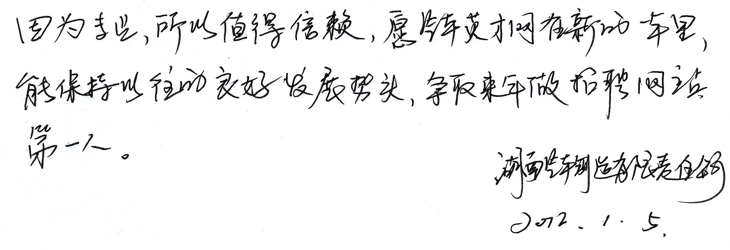 因为专业，所以值得信赖，愿汽车英才网在新的年里，
能保持以往的良好发展势头，争取来年做招聘网站
第一人。
湖南汽车制造有限责任公司
2012.1.5.